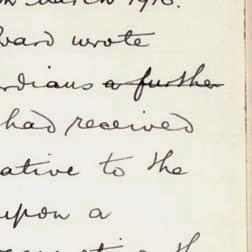 March 1916.
ward wrote
rdians a further
had received
ative to the
upon a